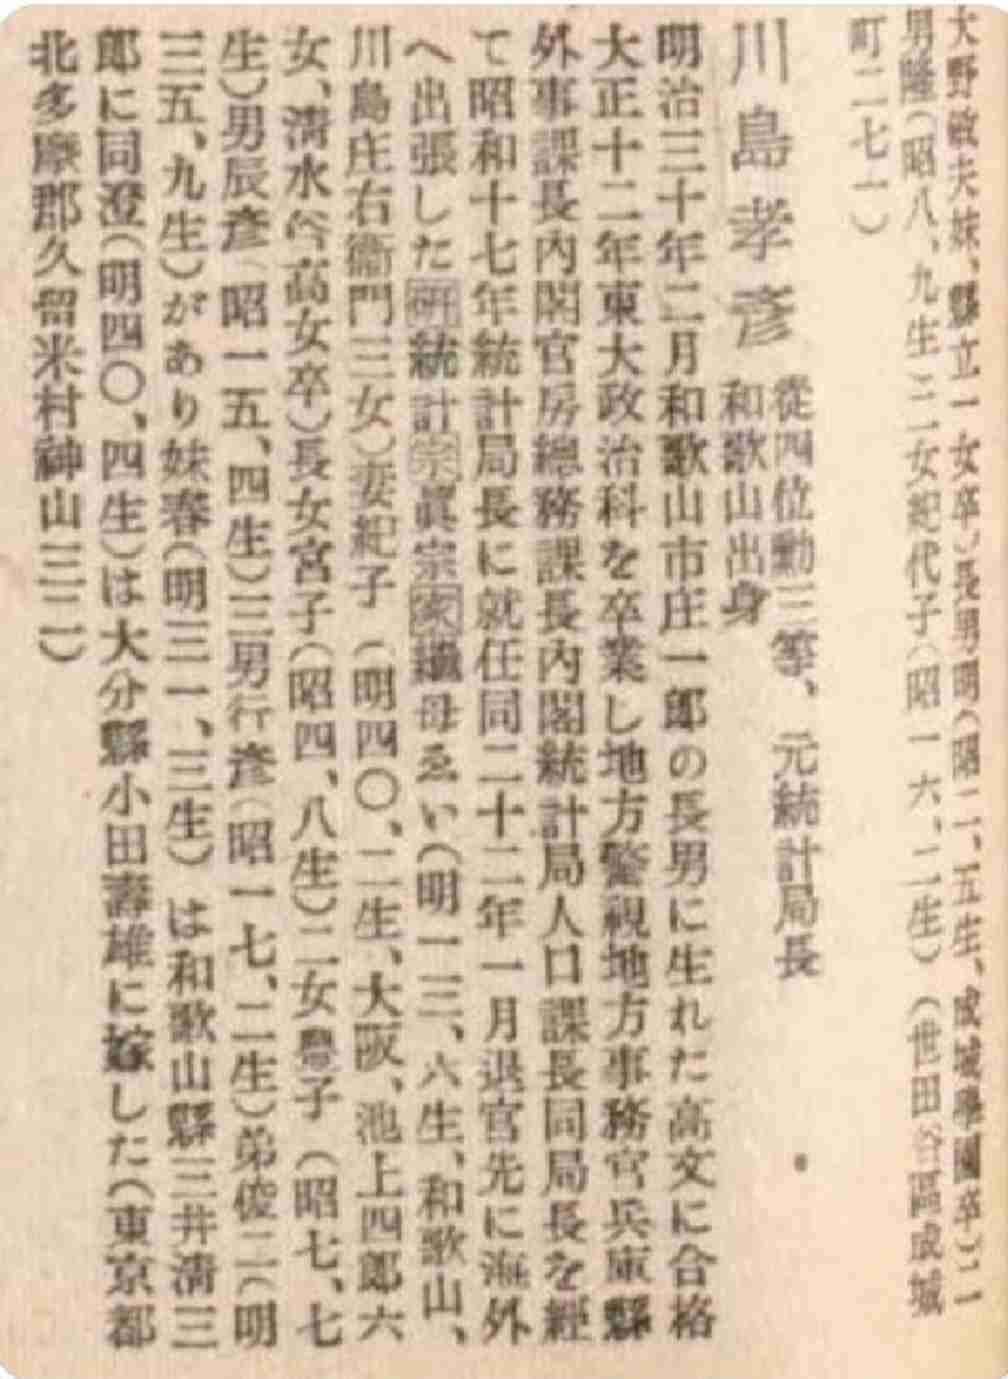 大野敏夫妹、縣立一女卒)長男明(昭二、五生、成城學園卒)二
男隆(昭八、九生)二女紀代子(昭一六、二生)(世田谷區成城
町二七一)
川島孝彦
從四位勳三等、元統計局長
和歌山出身
明治三十年二月和歌山市庄一郎の長男に生れた高文に合格
大正十二年東大政治科を卒業し地方警視地方事務官兵庫縣
外事課長內閣官房總務課長內閣統計局人口課長同局長を經
て昭和十七年統計局長に就任同二十二年一月退官先に海外
へ出張した研統計宗眞宗家繼母ゑい(明一三、六生、和歌山、
川島庄右衞門三女)妻紀子(明四〇、二生、大阪、池上四郎六
女、淸水谷高女卒)長女宮子(昭四、八生)二女豊子(昭七、七
生)男辰彥(昭一五、四生)三男行彥(昭一七、二生)弟俊二(明
三五、九生)があり妹春(明三一、三生)は和歌山縣三井淸三
郎に同澄(明四〇、四生)は大分縣小田壽雄に嫁した(東京都
北多摩郡久留米村神山三二)